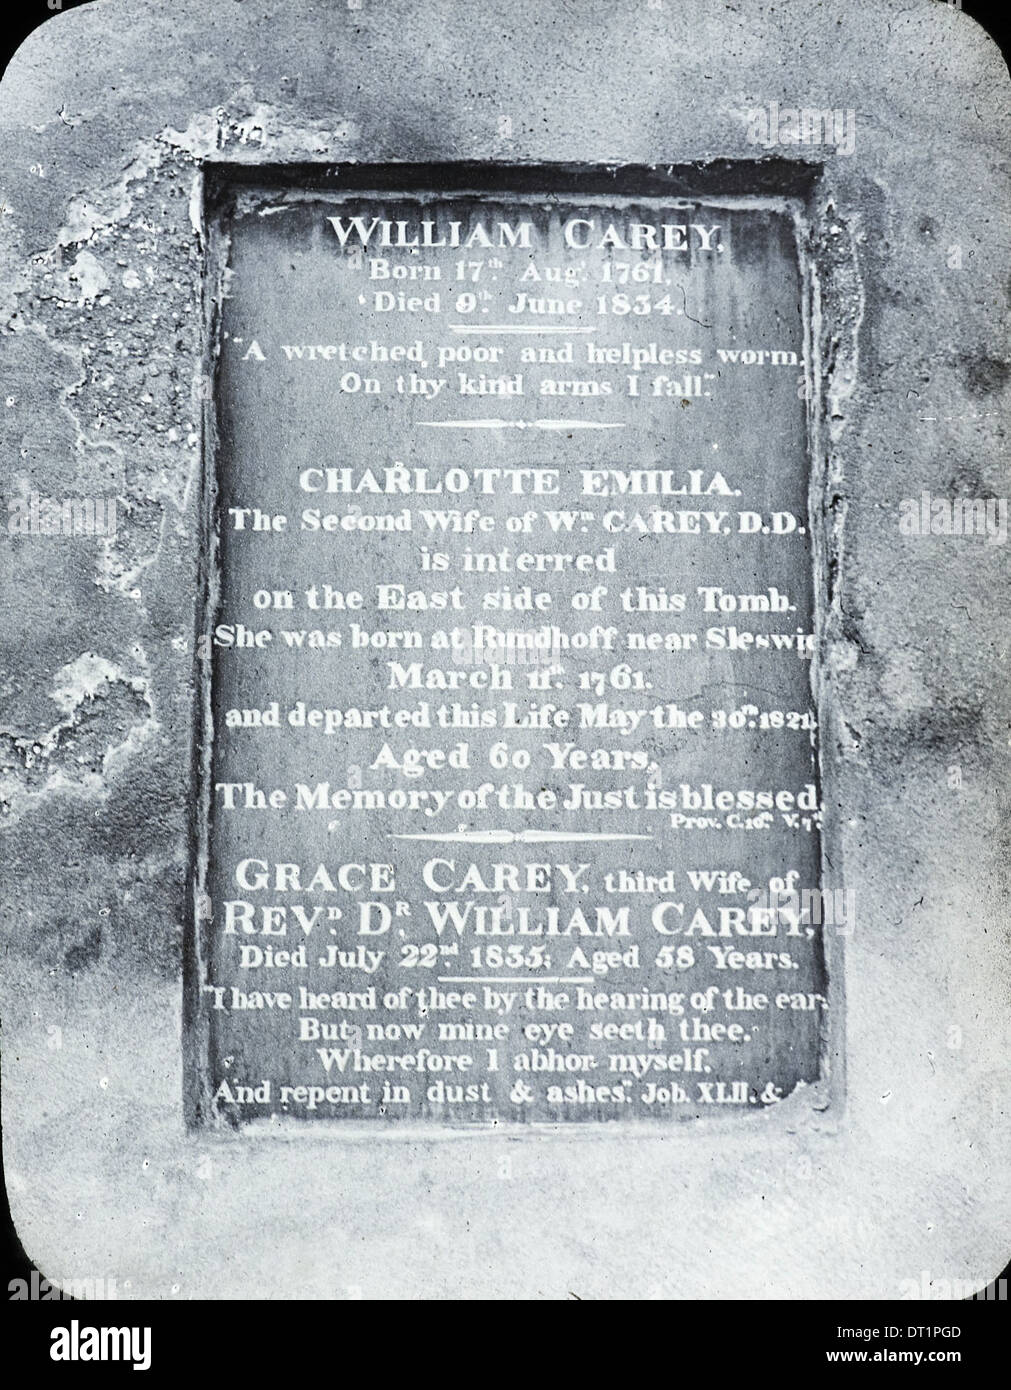 WILLIAM CAREY,
Born 17th Augt. 1761,
Died 9th June 1834.
"A wretched, poor and helpless worm,
On thy kind arms I fall."
CHARLOTTE EMILIA.
The Second Wife of Wm CAREY, D.D.
is interred
on the East side of this Tomb.
She was born at Rundhoff near
March 11th. 1761.
and departed this Life May the 30th. 1821.
Aged 60 Years.
The Memory of the Just is blessed.
Prov. C.10th. V.7th.
GRACE CAREY, third Wife of
REVD. DR. WILLIAM CAREY,
Died July 22nd 1835; Aged 58 Years.
"I have heard of thee by the hearing of the ear;
But now mine eye seeth thee.
Wherefore I abhor myself,
And repent in dust & ashes". Job. XLII. &
alamy
Image ID: DT1PGD
www.alamy.com